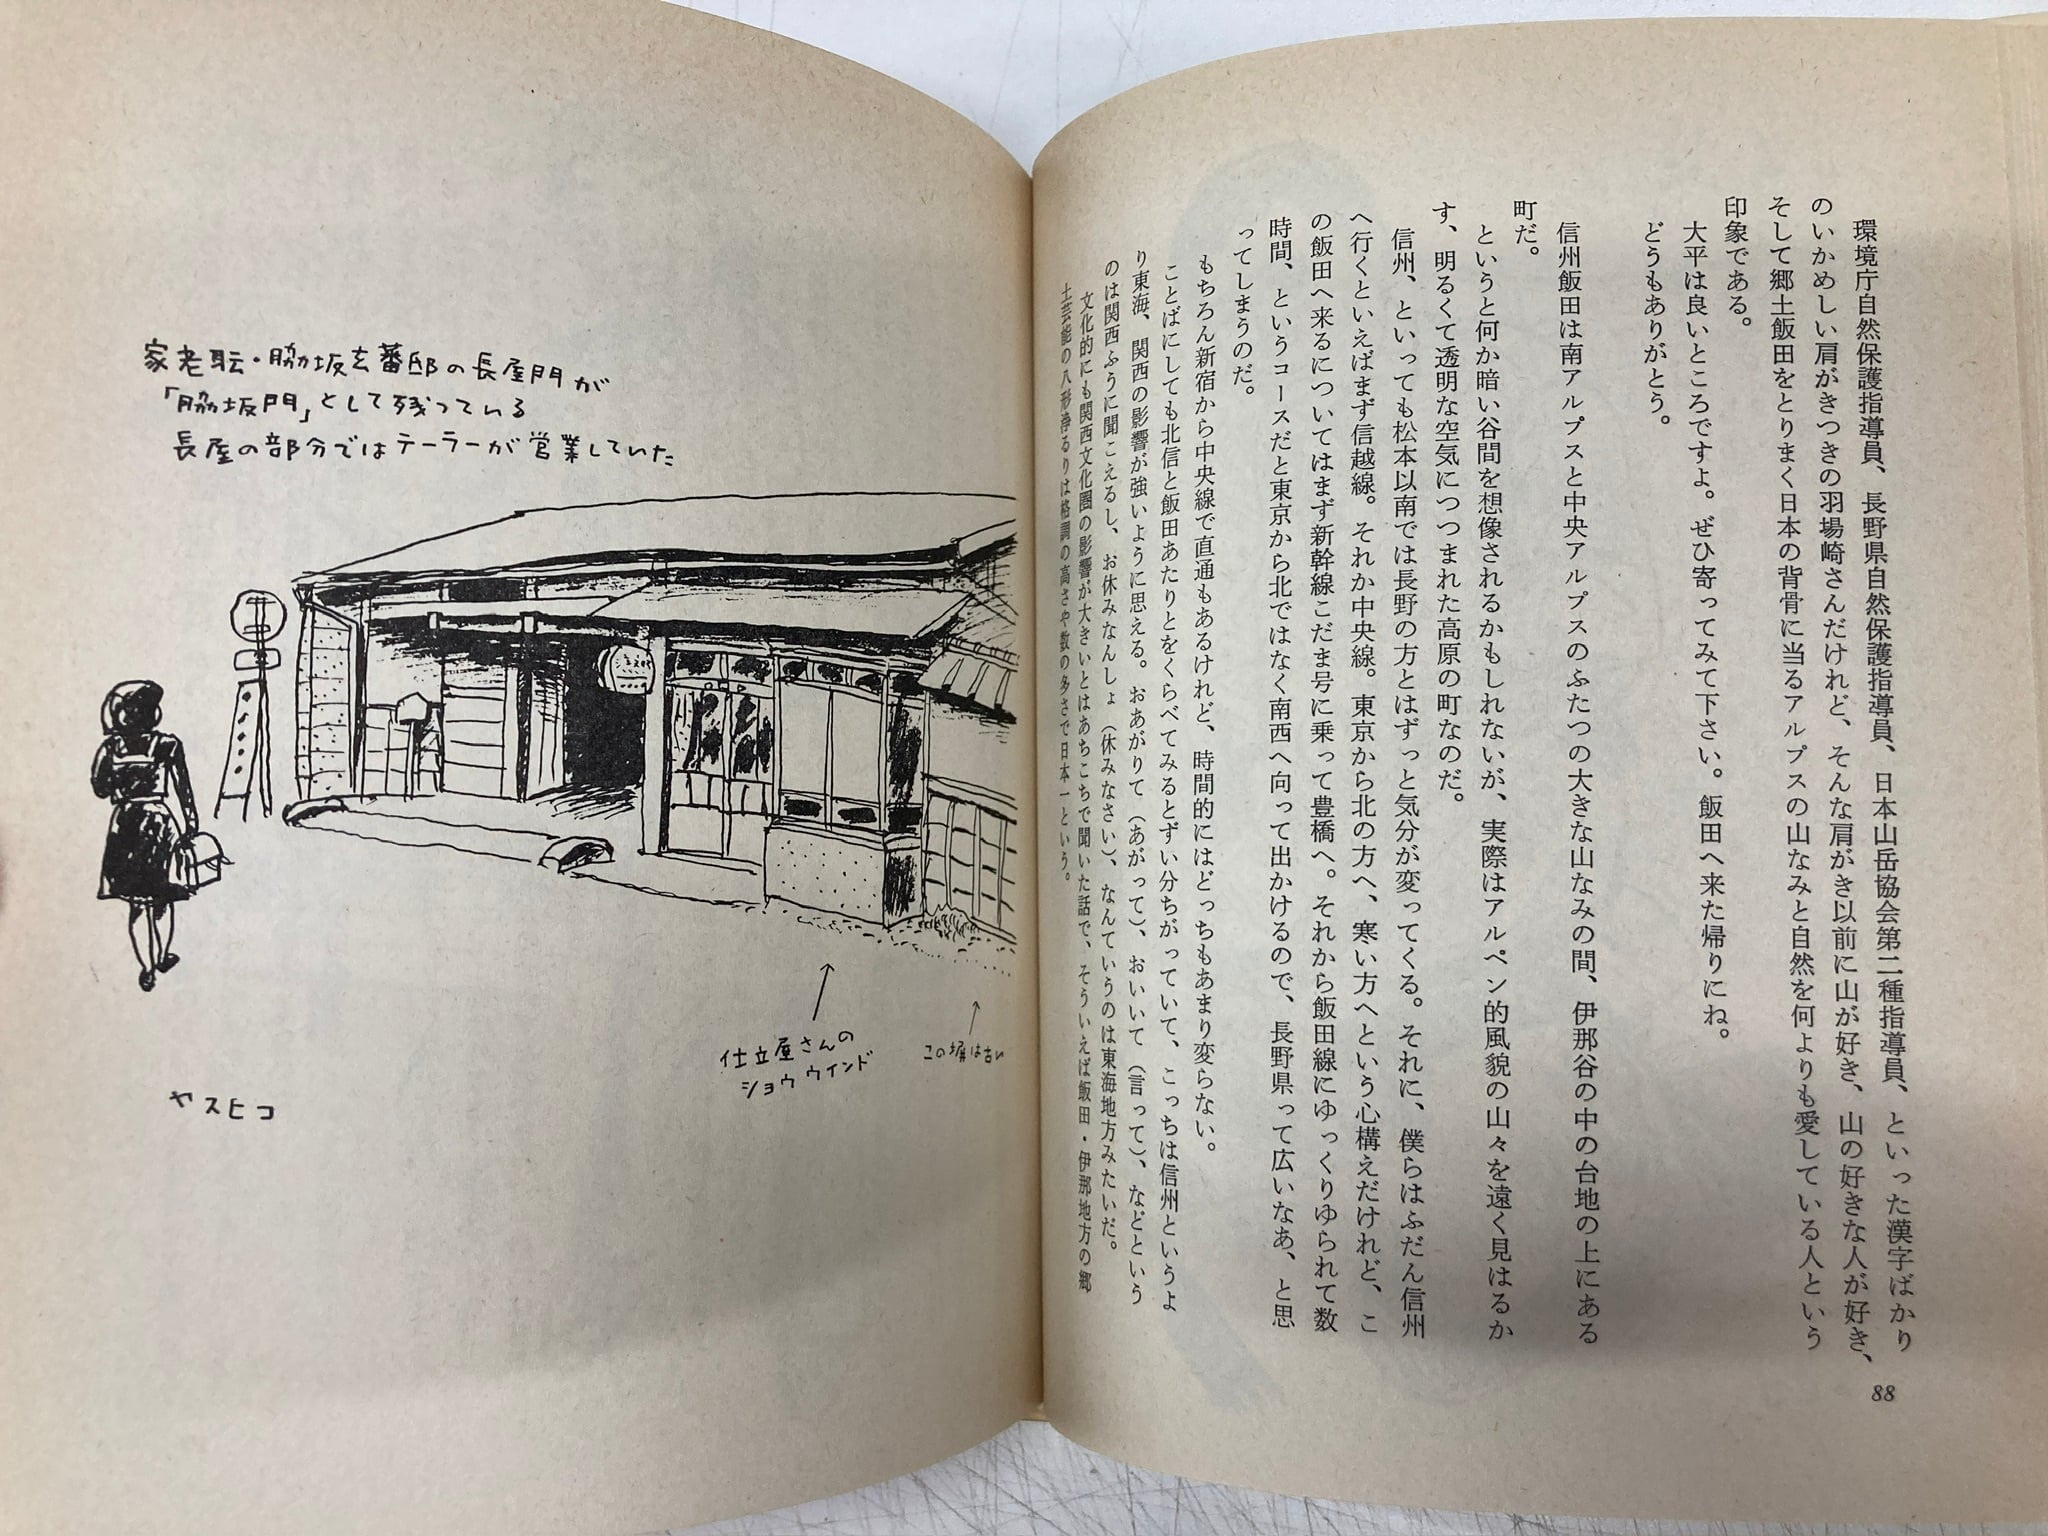 環境庁自然保護指導員、長野県自然保護指導員、日本山岳協会第二種指導員、といった漢字ばかり
のいかめしい肩がきつきの羽場崎さんだけれど、そんな肩がき以前に山が好き、山の好きな人が好き、
そして郷土飯田をとりまく日本の背骨に当るアルプスの山なみと自然を何よりも愛している人という
印象である。
大平は良いところですよ。ぜひ寄ってみて下さい。飯田へ来た帰りにね。
どうもありがとう。
信州飯田は南アルプスと中央アルプスのふたつの大きな山なみの間、伊那谷の中の台地の上にある
町だ。
というと何か暗い谷間を想像されるかもしれないが、実際はアルペン的風貌の山々を遠く見はるか
す、明るくて透明な空気につつまれた高原の町なのだ。
信州、といっても松本以南では長野の方とはずっと気分が変ってくる。それに、僕らはふだん信州
へ行くといえばまず信越線。それか中央線。東京から北の方へ、寒い方へという心構えだけれど、こ
の飯田へ来るについてはまず新幹線こだま号に乗って豊橋へ。それから飯田線にゆっくりゆられて数
時間、というコースだと東京から北ではなく南西へ向って出かけるので、長野県って広いなあ、と思
ってしまうのだ。
もちろん新宿から中央線で直通もあるけれど、時間的にはどっちもあまり変らない。
ことばにしても北信と飯田あたりとをくらべてみるとずい分ちがっていて、こっちは信州というよ
り東海、関西の影響が強いように思える。おあがりて（あがって）、おいいて（言って）、などという
のは関西ふうに聞こえるし、お休みなんしょ（休みなさい）、なんていうのは東海地方みたいだ。
文化的にも関西文化圏の影響が大きいとはあちこちで聞いた話で、そういえば飯田・伊那地方の郷
土芸能の人形浄るりは格調の高さや数の多さで日本一という。
88
家老職・脇坂玄蕃邸の長屋門が
「脇坂門」として残っている
長屋の部分ではテーラーが営業していた
仕立屋さんの
ショウウインド
この塀は古い
ヤスヒコ